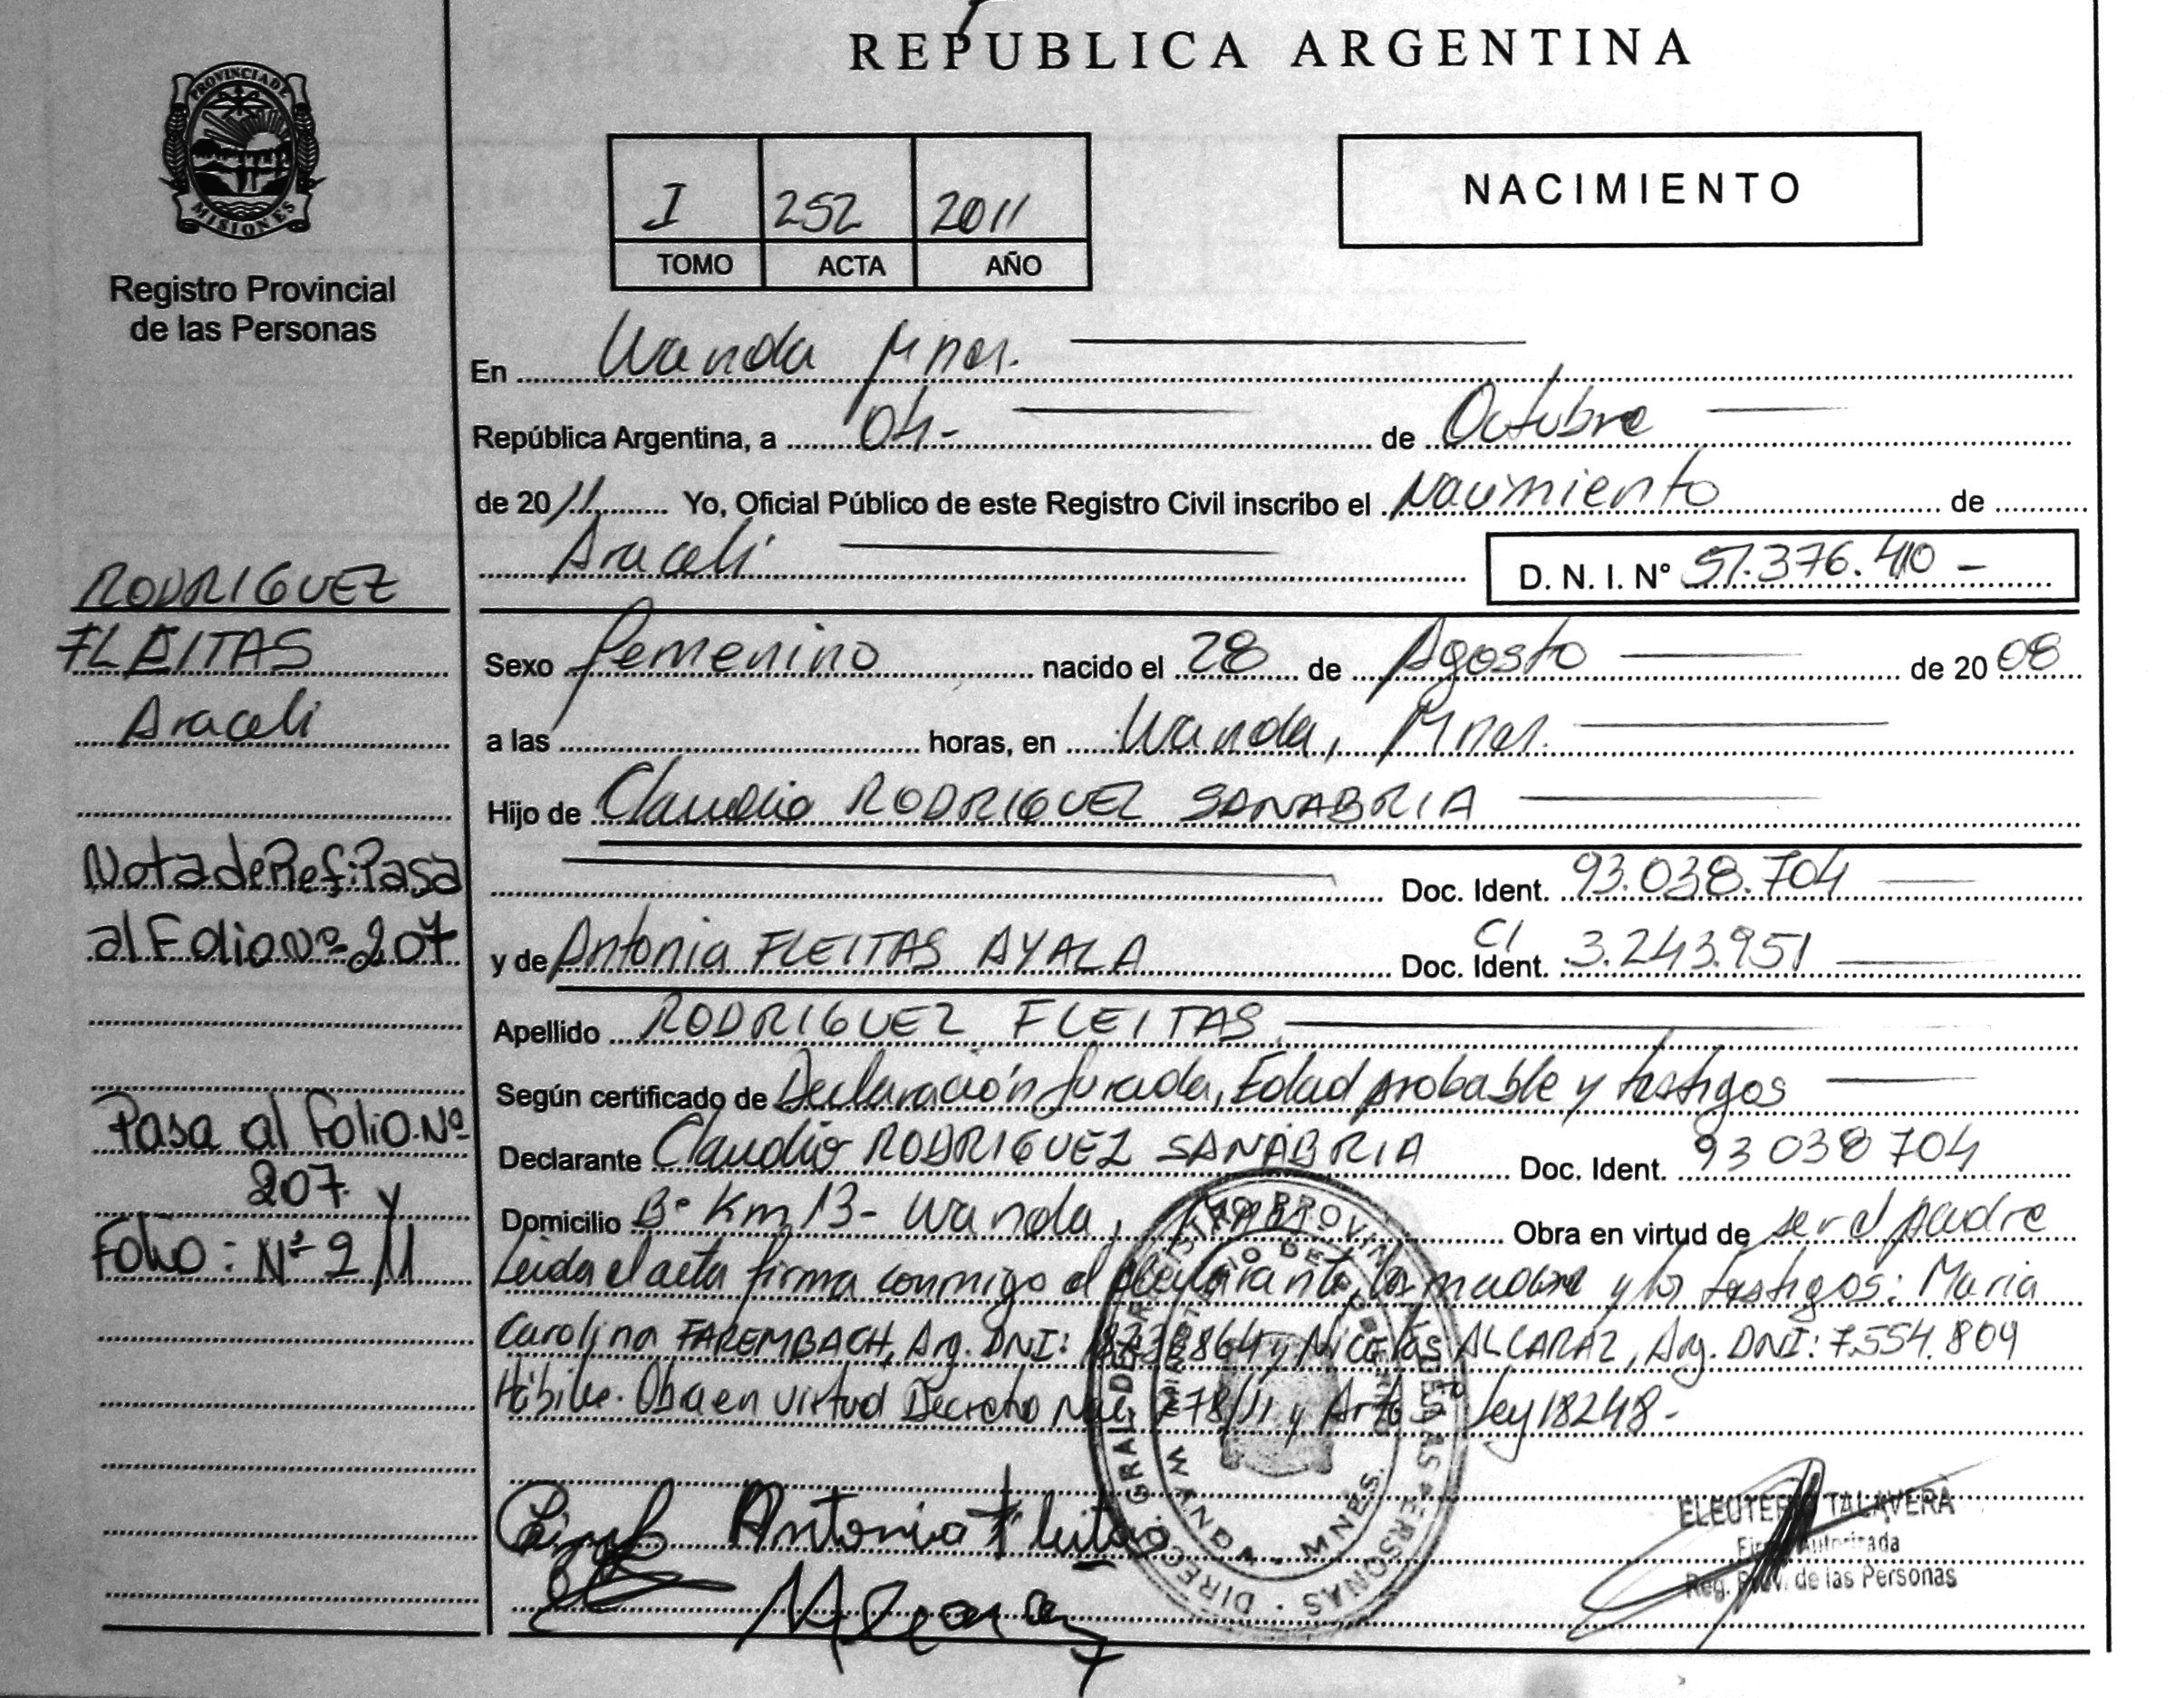 REPUBLICA ARGENTINA
PROVINCIA DE
MISIONES
Registro Provincial
de las Personas
I 252 2011
TOMO ACTA AÑO
NACIMIENTO
En Wanda Mnes.
República Argentina, a 04- de Octubre
de 2011 Yo, Oficial Público de este Registro Civil inscribo el Nacimiento de
Araceli D. N. I. N° 51.376.410 -
Sexo femenino nacido el 28 de Agosto de 2008
a las horas, en Wanda, Mnes.
Hijo de Claudio RODRIGUEZ SANABRIA
Doc. Ident. 93.038.704
y de Antonia FLEITAS AYALA CI Doc. Ident. 3.243.951
Apellido RODRIGUEZ FLEITAS
Según certificado de Declaración Jurada, Edad probable y testigos
Declarante Claudio RODRIGUEZ SANABRIA Doc. Ident. 93 038 704
Domicilio B° Km 13- Wanda, Obra en virtud de ser el padre
Leida el acta firma conmigo el declarante, la madre y los testigos: Maria
Carolina FAREMBACH, Arg. DNI: y Nicolas ALCARAZ, Arg. DNI: 7.554.804
Hábiles. Obra en virtud Decreto Nac. 278/11 y Art. Ley 18248-
RODRIGUEZ
FLEITAS
Araceli
Nota de Ref: Pasa
al Folio Nº 207
Pasa al Folio Nº
207 y
Folio: Nº 211
Antonia Fleitas
ELEUTERIO TALAVERA
Firma Autorizada
Reg. Prov. de las Personas
DIRECC. GRAL DE REGISTRO PROVINCIAL DE LAS PERSONAS
MINISTERIO DE GOBIERNO
WANDA - MNES.